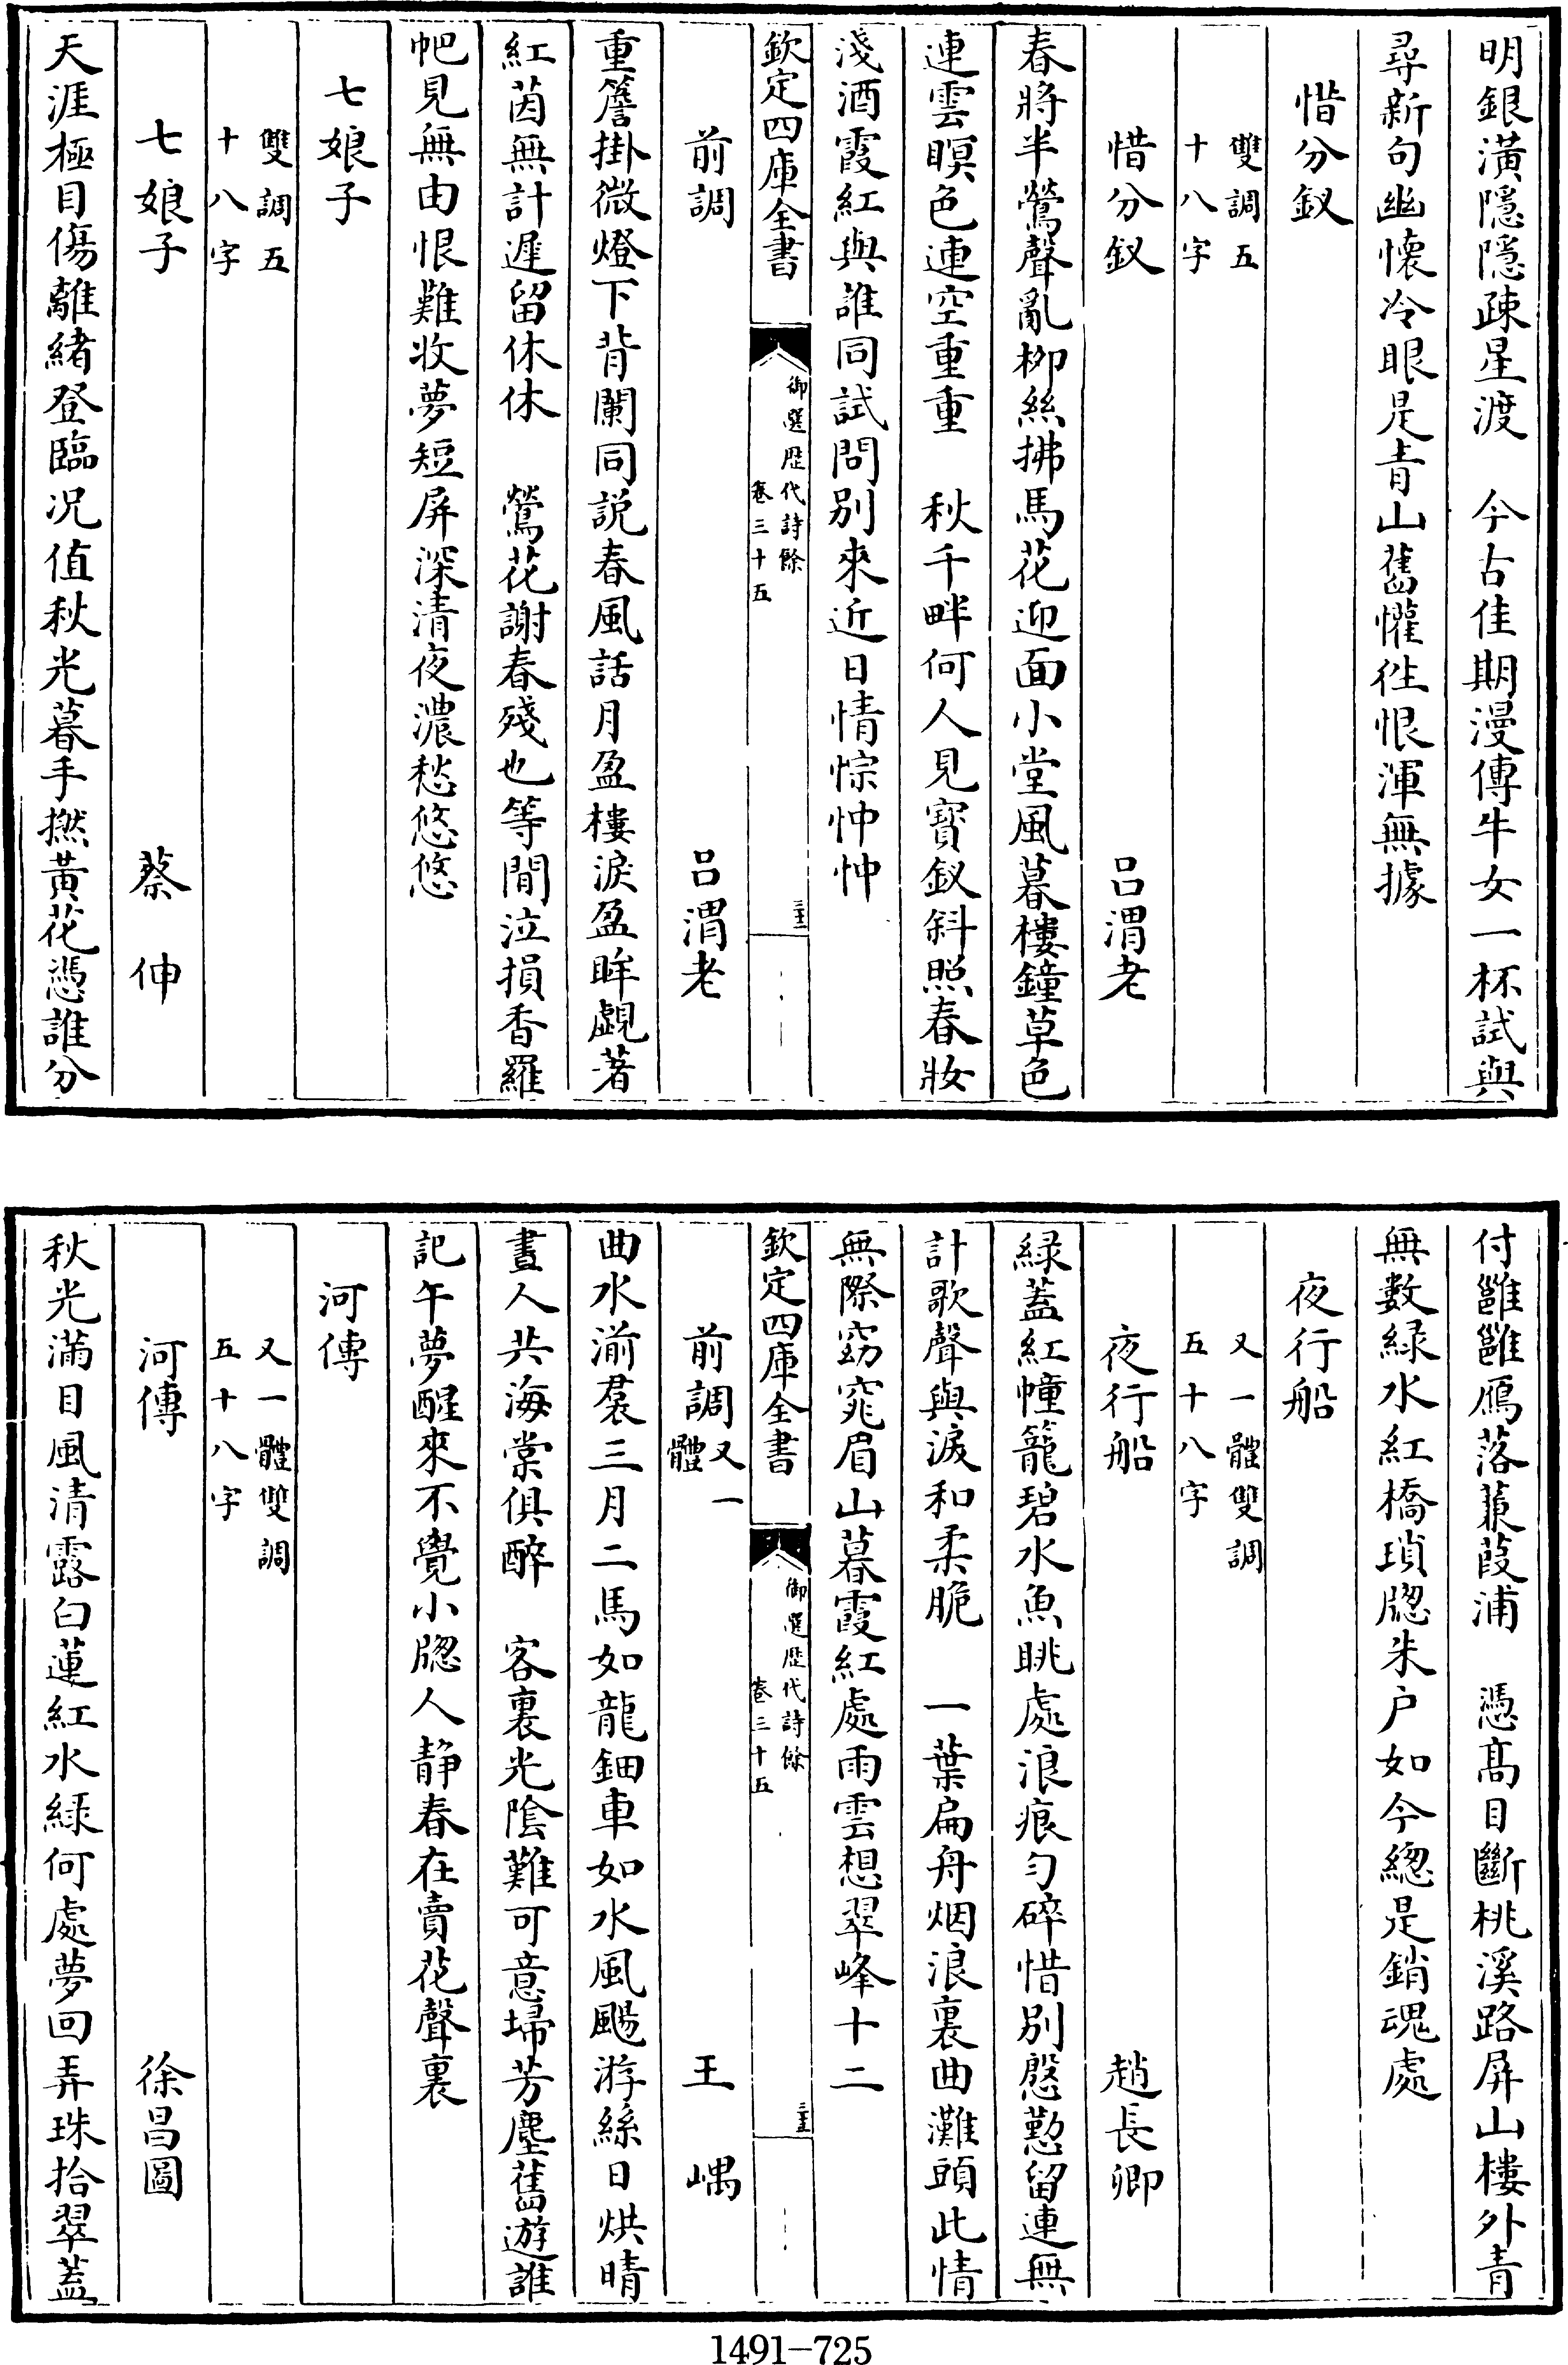 明銀潢隱隱疎星渡　今古佳期漫傳牛女一杯試與
尋新句幽懷冷眼是青山舊懽徃恨渾無據
惜分釵
雙調五
十八字
惜分釵　吕渭老
春將半鶯聲亂栁絲拂馬花迎面小堂風暮樓鐘草色
連雲暝色連空重重　秋千畔何人見寳釵斜照春妝
淺酒霞紅與誰同試問别來近日情悰忡忡
欽定四庫全書
御選歴代詩餘
卷三十五
前調　吕渭老
重簷掛微燈下背闌同説春風話月盈樓淚盈眸覷著
紅茵無計遲留休休　鶯花謝春殘也等閒泣損香羅
帊見無由恨難收夢短屏深清夜濃愁悠悠
七娘子
雙調五
十八字
七娘子　蔡伸
天涯極目傷離緒登臨况值秋光暮手撚黄花憑誰分
付雝雝鴈落蒹葭浦　憑髙目斷桃溪路屏山樓外青
無數緑水紅橋瑣牕朱户如今總是銷魂處
夜行船
又一體雙調
五十八字
夜行船　趙長卿
緑蓋紅幢籠碧水魚跳處浪痕匀碎惜别慇懃留連無
計歌聲與淚和柔脆　一葉扁舟烟浪裏曲灘頭此情
無際窈窕眉山暮霞紅處雨雲想翠峰十二
欽定四庫全書
御選歴代詩餘
卷三十五
前調又一體　王嵎
曲水湔裠三月二馬如龍鈿車如水風颺游絲日烘晴
晝人共海棠俱醉　客裏光陰難可意埽芳塵舊遊誰
記午夢醒來不覺小牕人静春在賣花聲裏
河傳
又一體雙調
五十八字
河傳　徐昌圖
秋光滿目風清露白蓮紅水緑何處夢回弄珠拾翠蓋
1491-725